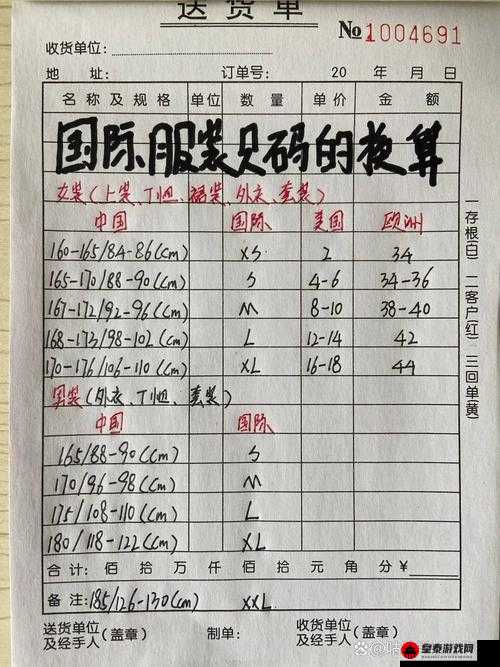 送货单
№1004691
收货单位:
地 址: 订单号: 20 年 月 日
名称及规格 单位 数量 单价 金额
国际服装尺码的换算
女装(上装、T恤、裙装、外衣、套装)
中国 国际 美国 欧洲
160-165/84-86(cm) XS 2 34
165-170/88-90(cm) S 4-6 34-36
167-172/92-96(cm) M 8-10 38-40
168-173/98-102(cm) L 12-14 42
170-176/106-110(cm) XL 16-18 44
男装(外衣、T恤、套装)
中国 国际
165/88-90(cm) S
170/96-98(cm) M
175/108-110(cm) L
180/118-122(cm) XL
合计: 佰 拾 万 仟 佰 拾 元 角 分 ¥
备注: 185/126-130(cm) XXL
送货单位及经手人(盖章) 制单: 收货单位及经手人(盖章)
一存根(白) 二客户(红) 三回单(黄)
皇泰游戏网